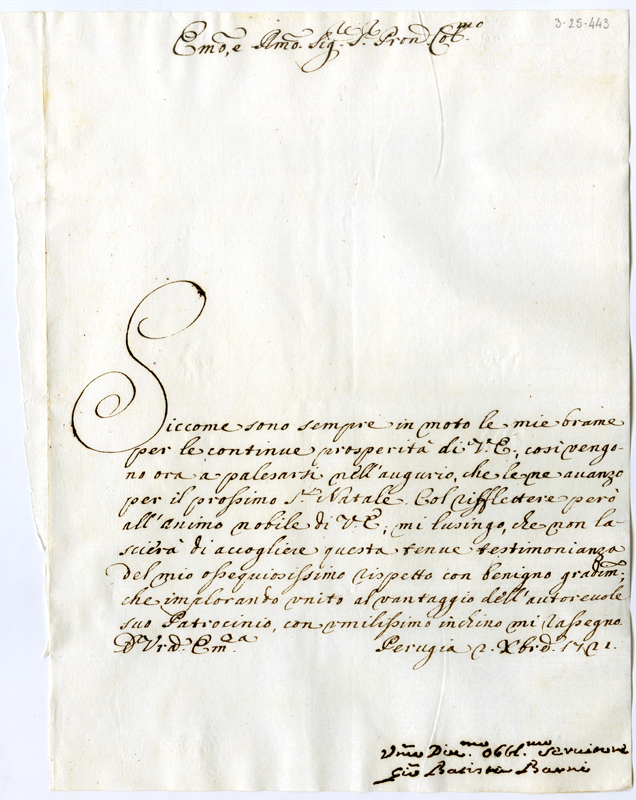 3-25-443
Emõ, e Rmõ. Sig.re S.r Pron Col.mo
Siccome sono sempre in moto le mie brame
per le continue prosperità di V.E., così vengo-
no ora a palesarsi nell'augurio, che le ne avanzo
per il prossimo S.to Natale. Col rifflettere però
all'animo nobile di V.E., mi lusingo, che non la-
scierà di accogliere questa tenue testimonianza
del mio ossequiosissimo rispetto con benigno gradim̃;
che implorando vnito al vantaggio dell'autorevole
suo Patrocinio, con vmilissimo inchino mi rassegno
D Vrã. Em.za Perugia 2. Xbrẽ. 1721.
Vmõ Div.mo Obbl.mo Servitore
Gio Batista